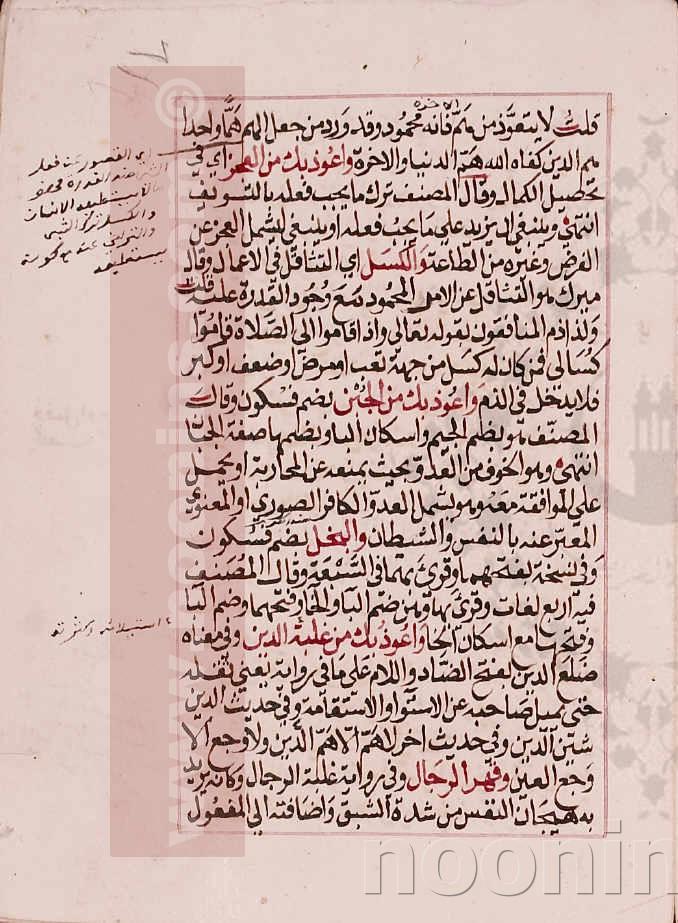 الآخرة
قلت لا يتعوذ من هم فانه محمود وقد ورد من جعل الهم همًّا واحدا
هم الدين كفاه الله هم الدنيا والاخرة واعوذ بك من العجز اي في
تحصيل الكمال وقال المصنف ترك ما يجب فعله بالتسويف
انتهى وينبغي ان يزيد على ما يجب فعله او ينبغي ليشمل العجز عن
الفرض وغيره من الطاعة والكسل اي التثاقل في الاعمال وقال
ميرك هو التثاقل عن الامر المحمود مع وجود القدرة عليه قلت
ولذا ذم المنافقون بقوله تعالى واذا قاموا الى الصلاة قاموا
كسالى فمن كان له كسل من جهة تعب او مرض او ضعف او كبر
فلا يدخل في الذم واعوذ بك من الجبن بضم فسكون وقال
المصنف هو بضم الجيم واسكان الباء وبضمها صفة الجبان
انتهى وهو الخوف من العدو بحيث يمنعه عن المحاربة او يحمل
على الموافقة معه وهو يشمل العدو الكافر الصوري او المعنوي
المعبر عنه بالنفس والشيطان والبخل بضم فسكون
وفي نسخة بفتحهما وقرئ بهما في السبعة وقال المصنف
فيه اربع لغات وقرئ بها وهن ضم الباء والخاء وفتحهما وضم الباء
وفتحها مع اسكان الخاء واعوذ بك من غلبة الدين وفي معناه
ضلع الدين بفتح الضاد واللام على ما في رواية يعني ثقله
حتى يميل صاحبه عن الاستواء والاستقامة وفي حديث الدين
شين الدين وفي حديث اخر لا هم الا هم الدين ولا وجع الا
وجع العين وقهر الرجال وفي رواية غلبة الرجال وكانه يريد
به هيجان النفس من شدة الشبق واضافته الى المفعول
اي القصور عن فعل
الشيء ضد القدرة
ما لا يستطيعه الانسان
والكسل ترك الشيء
والتراخي عنه مع كونه
يستطيعه
استيلائه وكثرته
www.noonin
noonin